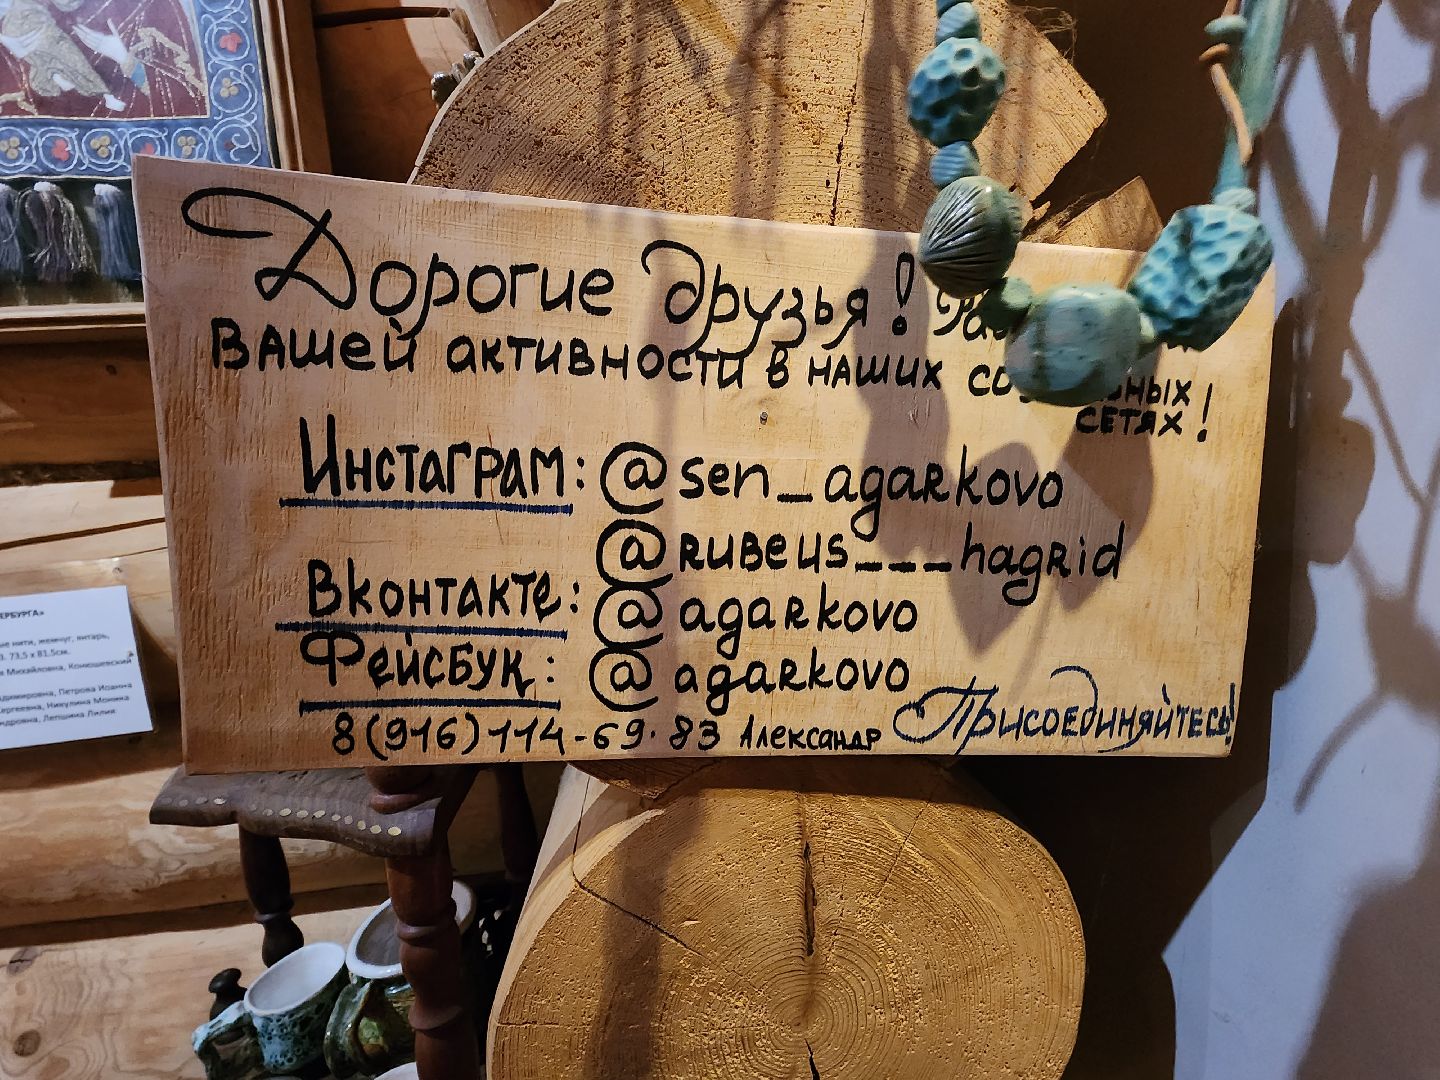 Дорогие друзья!
вашей активности в наших
сетях!
Инстаграм: @sen_agarkovo
@rubeus___hagrid
Вконтакте: @agarkovo
Фейсбук: @agarkovo
8(916)114-69-83 Александр Присоединяйтесь!
ние нити, жемчуг, янтарь,
73,5 х 81,5см.
Михайловна, Конюшевский
Петрова Иоанна
Сергеевна, Никулина Моника
Лепшина Лилия